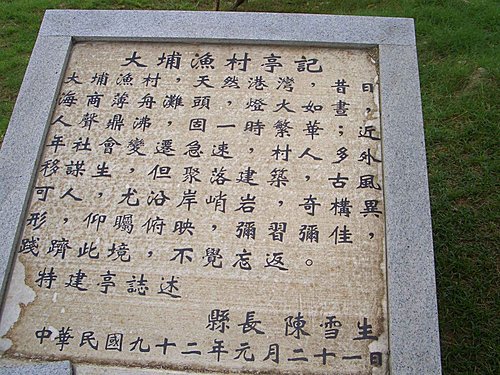 大埔漁村亭記
大埔漁村，天然港灣，昔日，
海商薄舟灘頭，燈火如晝，
人聲鼎沸，固一時繁華；近
年社會變遷急速，村人多外
移謀生，但聚落建築，古風
可人，尤沿岸峭岩，奇構異
形，仰矚俯映，彌習彌佳，
踐躋此境，不覺忘返。
特建亭誌述
縣長 陳雪生
中華民國九十二年元月二十一日